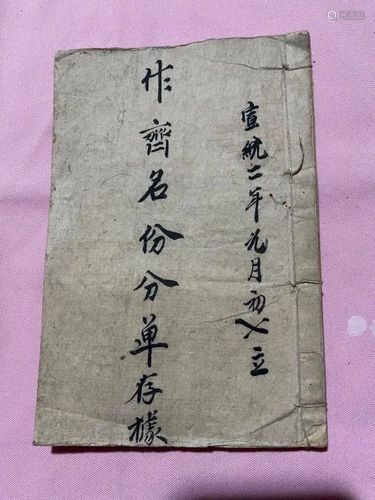 宣統二年九月初乂立
作齊名份分单存據